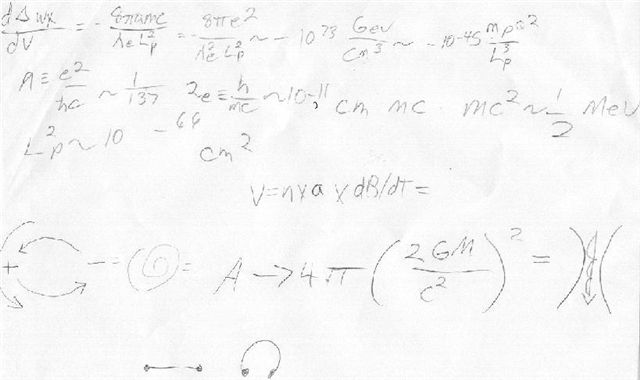 dΔwx/dV = - 8παmc/λeL²p = - 8πe²/λ²eL²p ~ - 10⁷³ Gev/cm³ ~ - 10-45 mpc²/L³p
A ≡ e²/ħc ~ 1/137 2e ≡ ħ/mc ~ 10-11, cm mc · mc² ~ 1/2 MeV
L²p ~ 10 -66 cm²
V=nxaxdB/dT=
+ — = = A → 4π (2GM/c²)² = )(